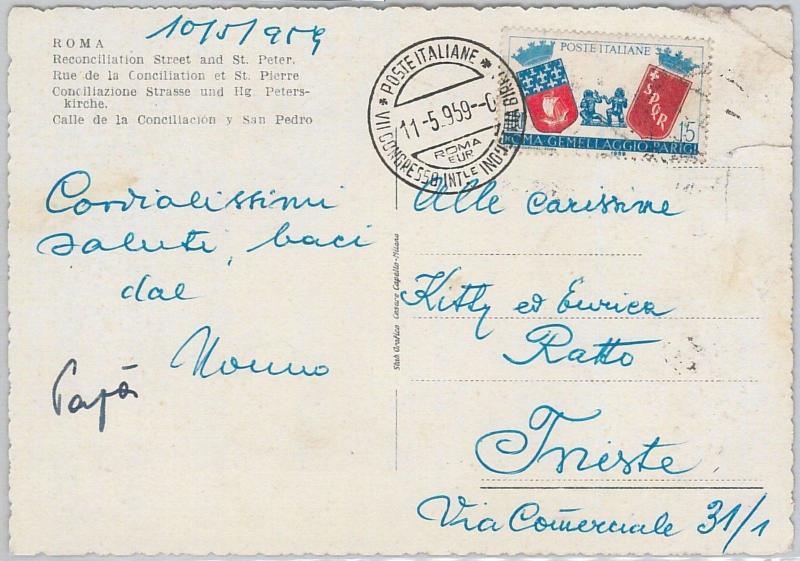 10/5/959
ROMA
Reconciliation Street and St. Peter.
Rue de la Conciliation et St. Pierre
Conciliazione Strasse und Hg. Peters-
kirche.
Calle de la Conciliación y San Pedro
Cordialissimi
saluti, baci
dal
Nonno
Papà
POSTE ITALIANE
11-5.959
ROMA
EUR
VII CONGRESSO INT.LE
POSTE ITALIANE
S.P.Q.R
15
ROMA-GEMELLAGGIO-PARIGI
Stab. Grafico Cesare Capello-Milano
Alle carissime
Kitty ed Enrica
Ratto
Trieste
Via Commerciale 31/1